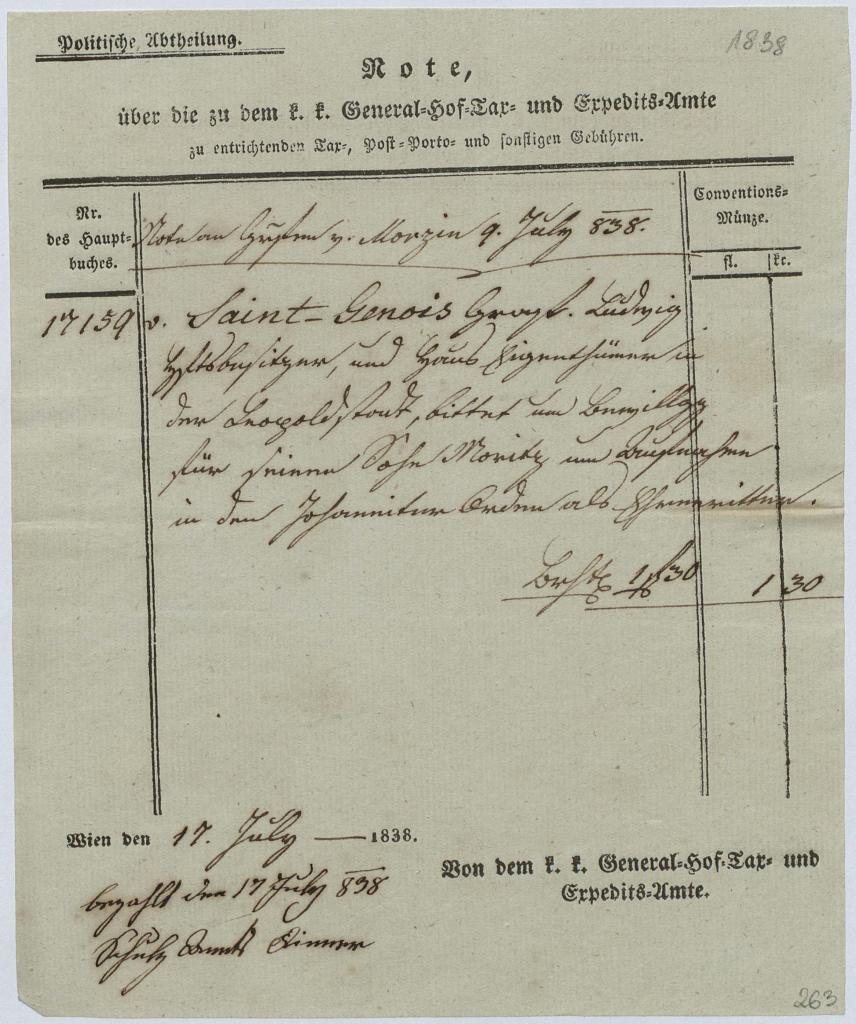 Politische Abtheilung.
1838
Note,
über die zu dem k. k. General-Hof-Tax- und Expedits-Amte
zu entrichtenden Tax-, Post-Porto- und sonstigen Gebühren.
Nr.
des Haupt-
buches.
Note an Grafen v. Morzin 9. July 838.
Conventions-
Münze.
fl. kr.
17159 v. Saint-Genois Graf. Ludwig
Gutsbesitzer, und Haus Eigenthümer in
der Leopoldstadt, bittet um Bewillgg
für seinen Sohn Moritz um Aufnahme
in den Johanniter Orden als Ehrenritter.
1 f 30 1 30
Wien den 17. July — 1838.
bezahlt den 17 July 838
Von dem k. k. General-Hof-Tax- und
Expedits-Amte.
Schulz Amts Diener
263